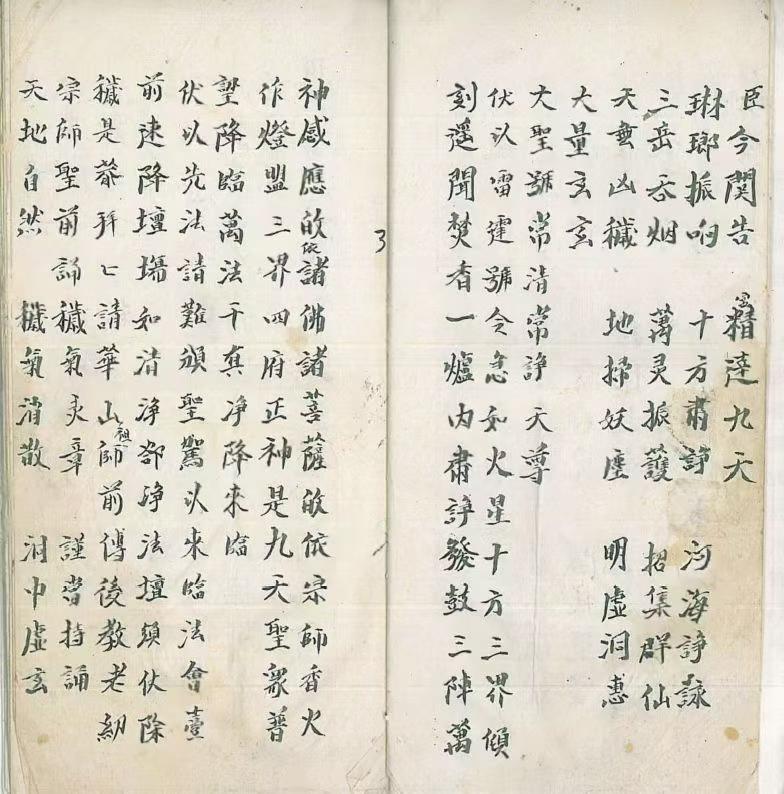 臣今関告 蜜精达九天
琳瑯振响 十方肅諍 河海諍詠
三岳吞烟 萬灵振護 招集群仙
天無凶穢 地掃妖塵 明虛洞
大量玄玄
大聖號常清常諍天尊
伏以雷霆號令急如火星十方三界傾
刻遥聞焚香一爐内肅諍發鼓三陣萬
3
神感應皈依諸佛諸菩薩皈依宗師香火
作燈盟三界四府正神是九天聖衆普
望降臨萬法千真净降來臨
伏以先法請難頒聖駕以來臨法會臺
前速降壇場如清浄郤浄法壇須伏除
穢是拜匕請華山祖師前傳後教老
宗師聖前誦穢氣灵章 謹當持誦
天地自然 穢氣消散 洞中虛玄